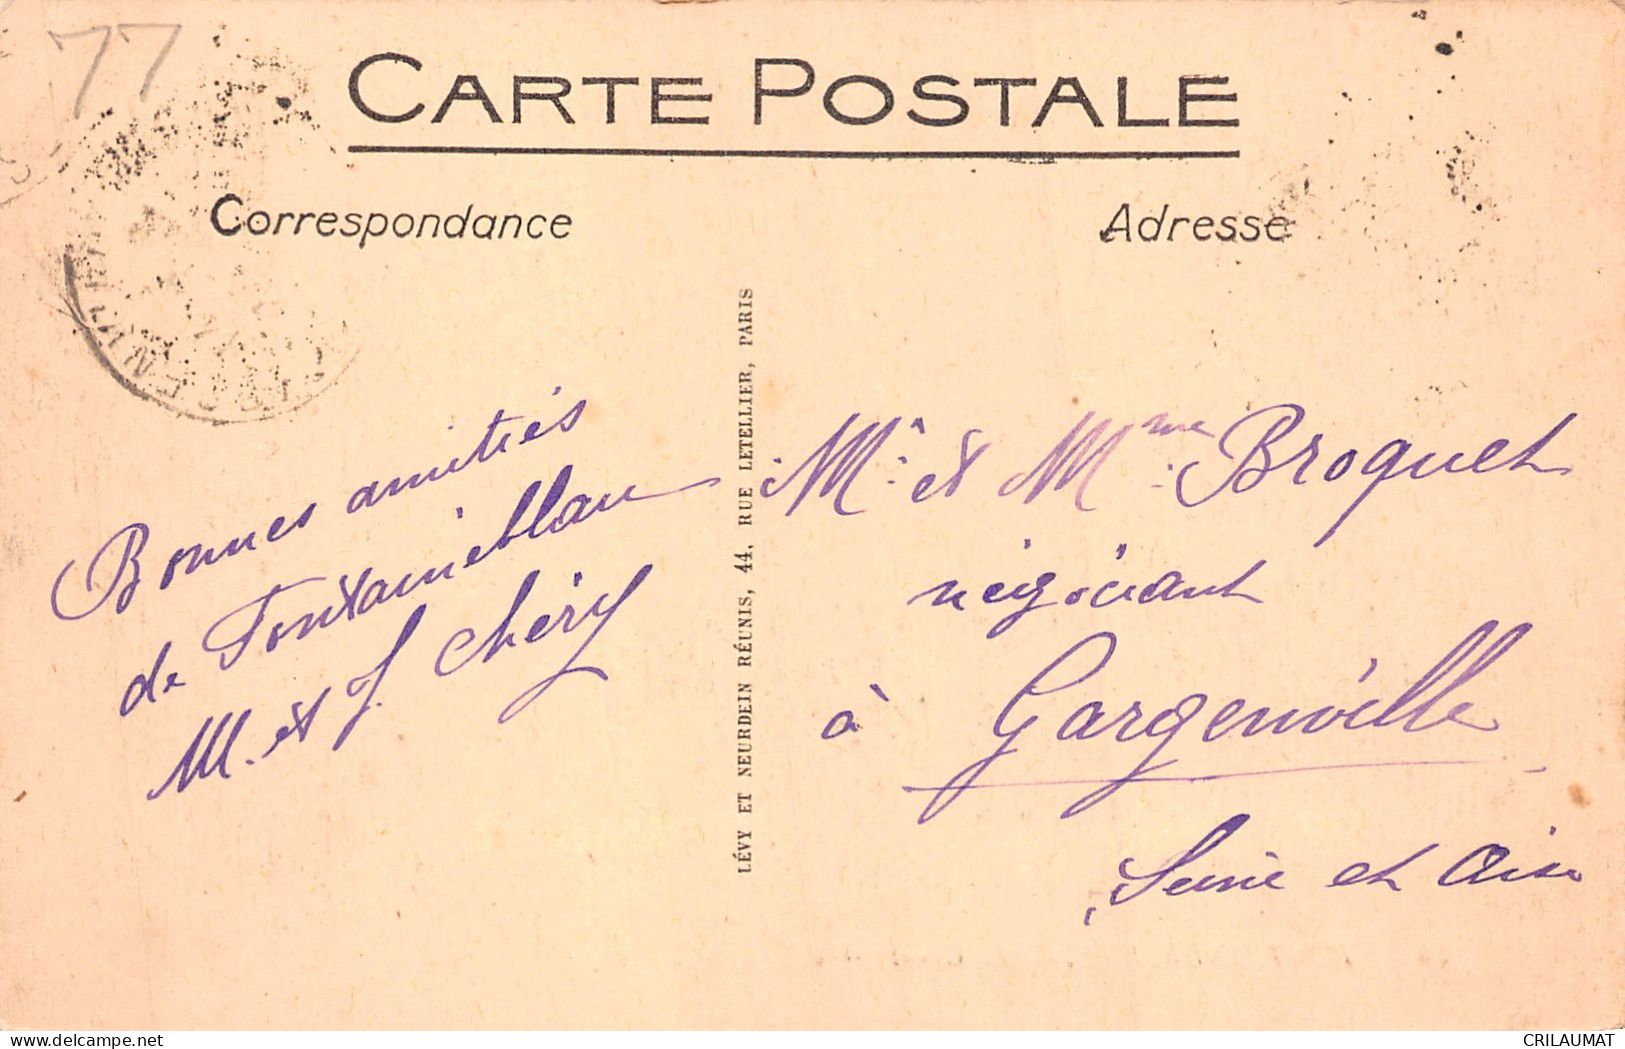 77
CARTE POSTALE
Correspondance
Adresse
Bonnes amitiés
de Fontainebleau
M. et J. Chéry
LÉVY ET NEURDEIN RÉUNIS, 44, RUE LETELLIER, PARIS
Mr. et Mme. Broquet
négociant
à Gargenville
Seine et Oise
delcampe.net
CRILAUMAT